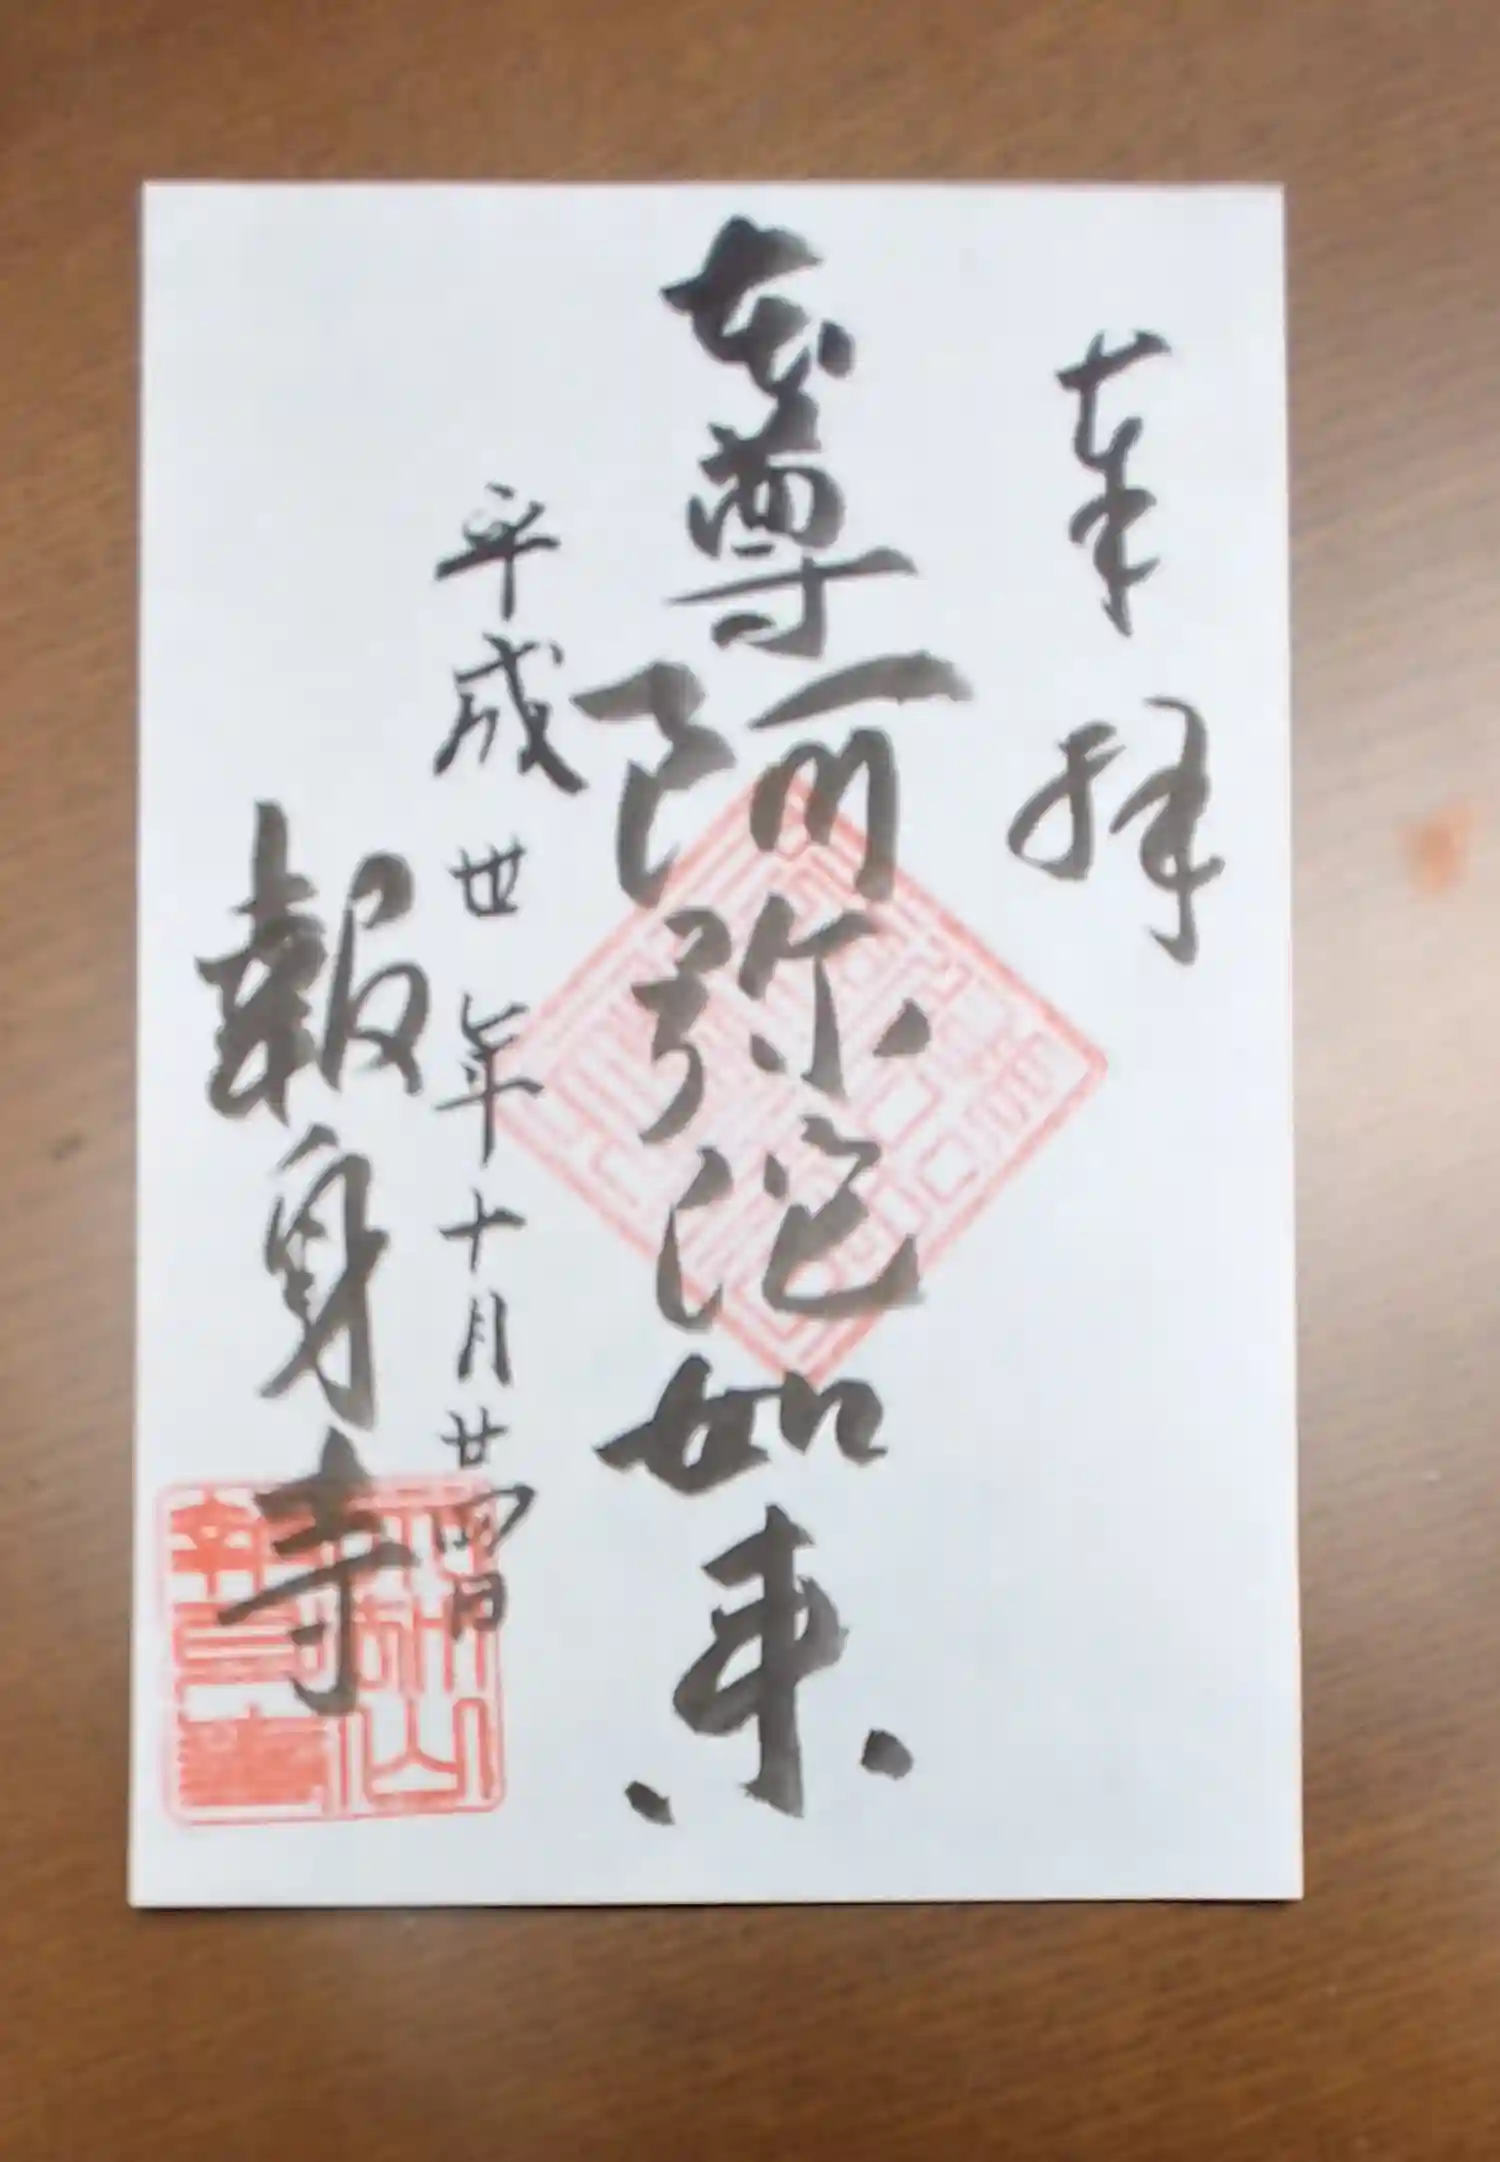 奉拝
本尊阿弥陀如来
平成卅年十月廿四日
報身寺